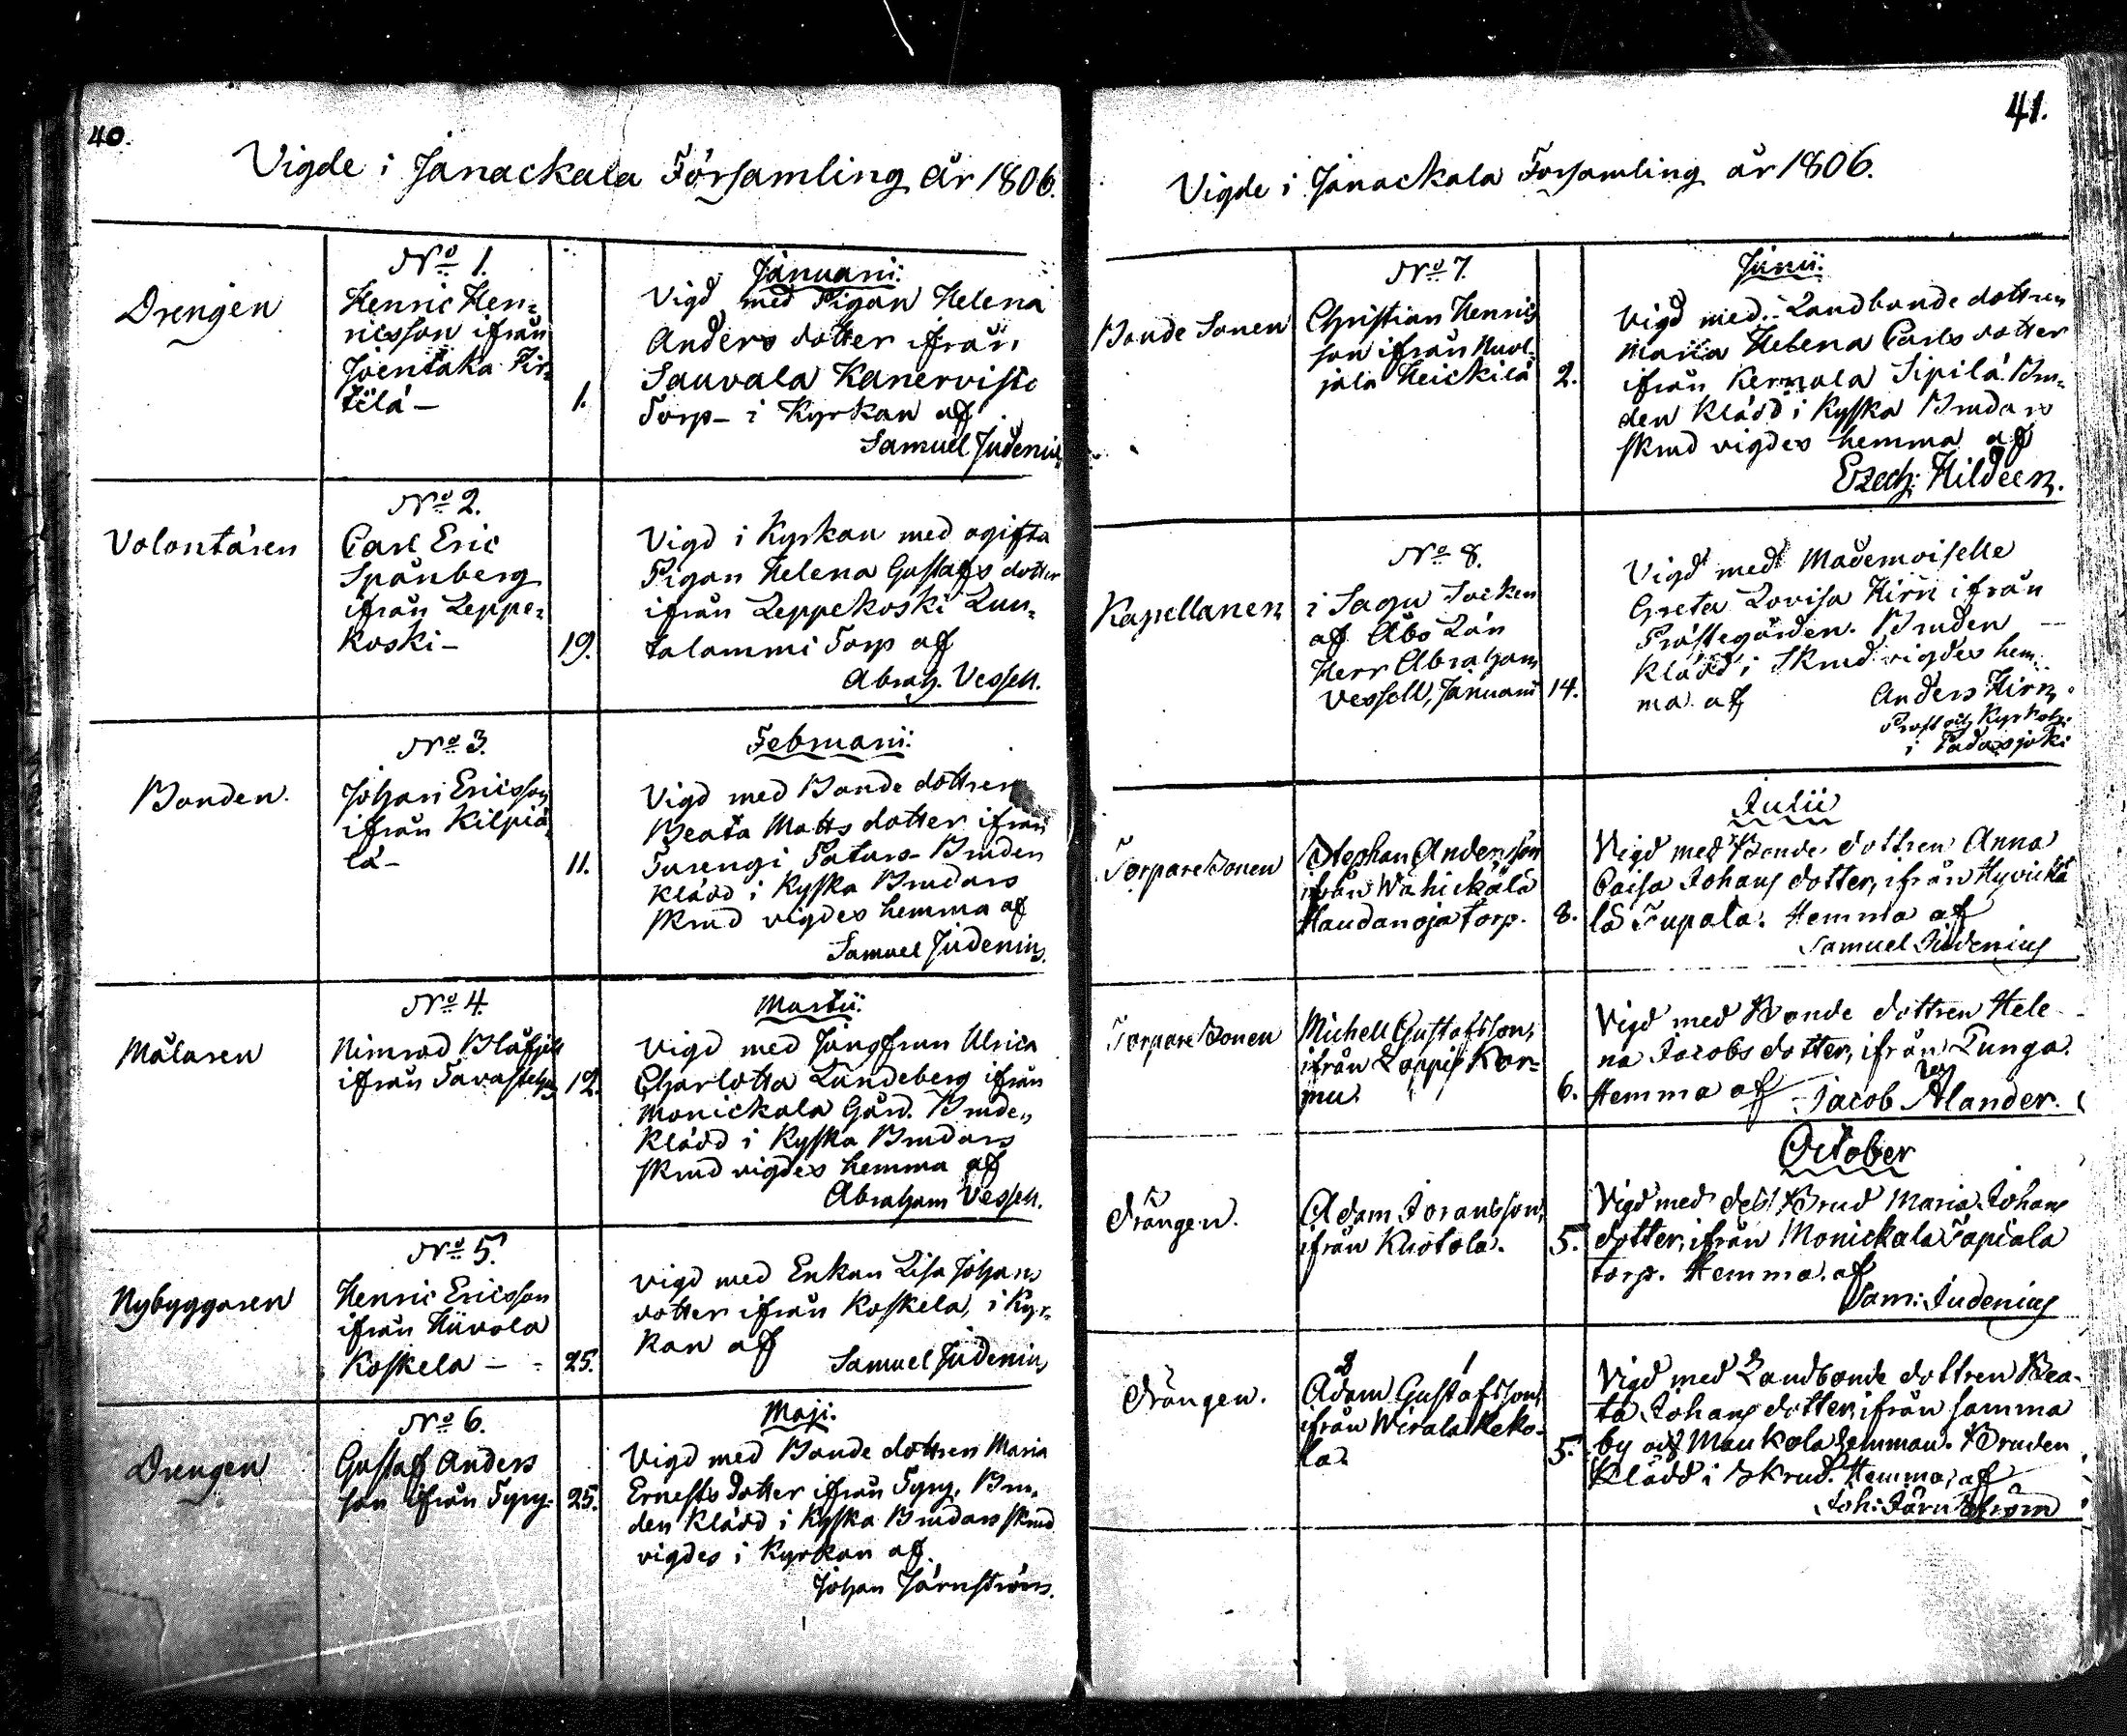 40.
Vigde i Janackala Församling år 1806.
No 1.
Januarii:
Drengen
Henric Hen-
ricsson ifrån
Joentaka Pir-
tilä —
1.
Vigd med Pigan Helena
Anders dotter ifrån
Sauvala Kanervisto
Torp — i Kyrkan af
Samuel Judenius
No 2.
Volontären
Carl Eric
Spånberg
ifrån Leppe-
koski —
19.
Vigd i Kyrkan med ogifta
Pigan Helena Gustafs dotter
ifrån Leppekoski Luu-
talammi Torp af
Abrah. Vessell.
No 3.
Februarii:
Bonden.
Johan Ericsson
ifrån Kilpiä-
lä —
11.
Vigd med Bonde dottren
Beata Matts dotter ifrån
Turengi Paturs — Bruden
klädd i Kyrka Brudars
skrud vigdes hemma af
Samuel Judenius.
No 4.
Martii:
Målaren
Nimrod Blåfjell
ifrån Tavastehus
12.
Vigd med Jungfrun Ulrica
Charlotta Lundeberg ifrån
Monickala Gård. Bruden
klädd i Kyrka Brudars
skrud vigdes hemma af
Abraham Vessell.
No 5.
Nybyggaren
Henric Ericsson
ifrån Hiivola
Koskela —
25.
Vigd med Enkan Lisa Johans
dotter ifrån Koskela, i Kyr-
kan af
Samuel Judenius
No 6.
Maji.
Drengen
Gustaf Anders
son ifrån Tyry.
25.
Vigd med Bonde dottren Maria
Ernests dotter ifrån Tyry. Bru-
den klädd i Kyrka Brudars skrud
vigdes i Kyrkan af
Johan Järnström.
41.
Vigde i Janackala Forsamling år 1806.
No 7.
Junii:
Bonde Sonen
Christian Henrics
son ifrån
Heickilä
2.
Vigd med Landbonde dottren
Maria Helena Carls dotter
ifrån Kernala Sipilä. Bru-
den klädd i Kyrka Brudars
skrud vigdes hemma af
Ezech: Hildeen.
No 8.
Kapellanen
i Sagu Socken
af Åbo Län
Herr Abraham
Vessell, Januarii
14.
Vigd med Mademoiselle
Greta Lovisa Hirn ifrån
Prästegården. Bruden
klädd i Skrud vigdes hem-
ma af
Anders Hirn,
Prost och Kyrkoh:
i Padasjoki
Julii
Torpare Sonen
Stephan Andersson
ifrån Wähickälä
Haudanoja torp.
8.
Vigd med Bonde dottren Anna
Caisa Johans dotter, ifrån Hyvickä
lä Tupala. Hemma af
Samuel Judenius
Torpare Sonen
Michell Gustafsson,
ifrån Loppis Kor-
mu.
6.
Vigd med Bonde dottren Hele-
na Jacobs dotter, ifrån Punga.
Hemma af Jacob Ålander.
October
Drängen.
Adam Joransson,
ifrån Knotola.
5.
Vigd med Maria Johans
dotter, ifrån Monickala Tapiala
torp. Hemma af
Sam: Judenius
Drängen.
Adam Gustafsson,
ifrån Wirala Keko-
la.
5.
Vigd med Landbonde dottren Bea-
ta Johans dotter, ifrån samma
by och Maukola hemman. Bruden
klädd i Skrud. Hemma, af
Joh: Järnström